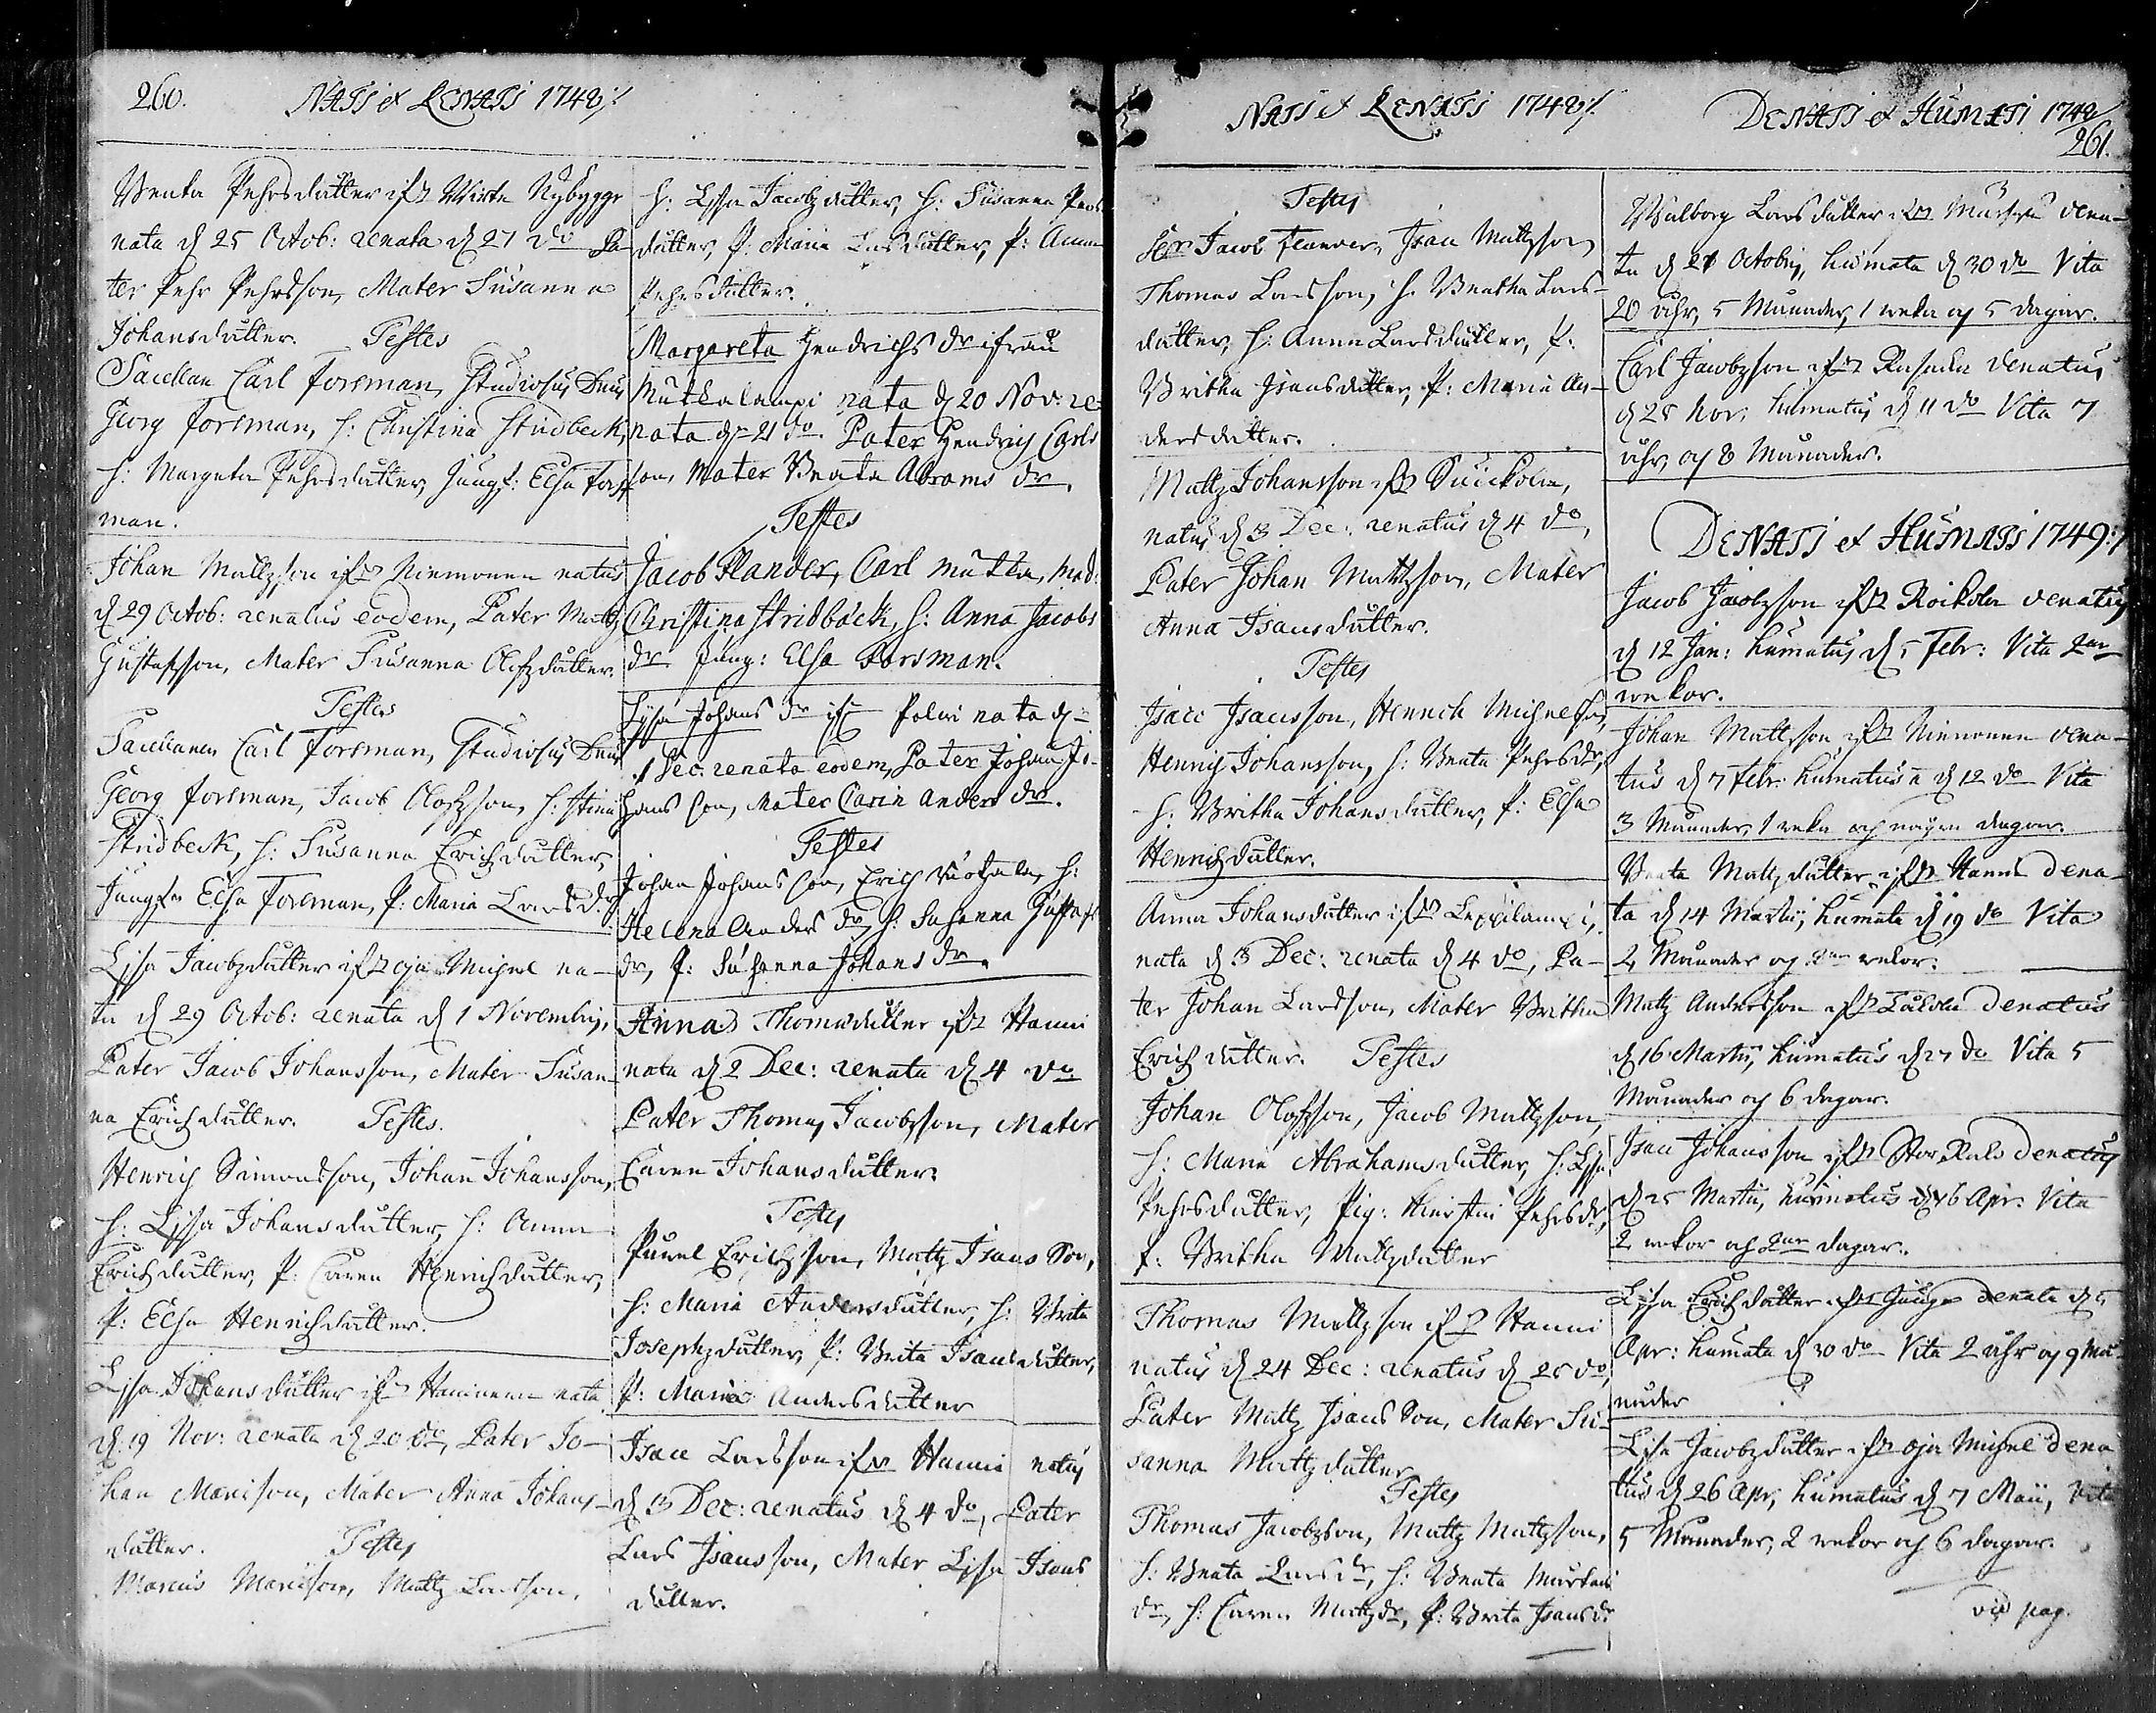 260. NATI et RENATI 1748 %
Beata Pehrsdutter ifr Wirta Nybygge
nata d 25 Octob: renata d 27 do Pa-
ter Pehr Pehrsson, Mater Susanna
Johansdutter. Testes
Sacellan Carl Forsman, Studiosus Dnus
Georg Forsman, h: Christina Stridbeck,
h: Margeta Pehrsdutter, Jungf: Elsa Fors-
man.
Johan Mattzson ifr Niemonen natus
d 29 Octob: renatus eodem, Pater Mattz
Gustafsson, Mater Susanna Olofzdutter.
Testes
Sacellanen Carl Forsman, Studiosus Dnus
Georg Forsman, Jacob Olofzson, h: Stina
Stridbeck, h: Susanna Erichzdutter,
Jungfr Elsa Forsman, P: Maria Larsdr
Lisa Jacobzdutter ifr Oja Michel na-
ta d 29 Octob: renata d 1 Novembris,
Pater Jacob Johansson, Mater Susan-
na Erichzdutter. Testes.
Henrich Simonsson, Johan Johansson,
h: Lisa Johansdutter, h: Anna
Erichzdutter, P: Caren Henrichzdutter,
P: Elsa Henrichzdutter.
Lisa Johansdutter ifr Haninen nata
d 19 Nov: renata d 20 do, Pater Jo-
han Marcison, Mater Anna Johans-
dutter. Testes
Marcus Marcison, Mattz Larsson,
h: Lisa Jacobzdutter, h: Susanna Pers-
dutter, P: Maria Larsdutter, P: Anna
Pehrsdutter.
Margareta Hendrichs dr ifrån
Mutkalampi nata d 20 Nov: re-
nata d 21 do. Pater Hendrich Carls
son, Mater Beata Abrams dr.
Testes
Jacob Flander, Carl Mutka, Mad:
Christina Stridbäck, h: Anna Jacobs
dr Jung: Elsa Forsman.
Lisa Johans dr ifr Polwi nata d
1 Dec. renata eodem, Pater Johan Jo-
hans son, Mater Carin Anders dr.
Testes
Johan Johans son, Erich h:
Helena Anders dr, h: Susanna Gustafs
dr, P: Susanna Johans dr.
Anna Thomasdutter ifr Hanni
nata d 2 Dec: renata d 4 do
Pater Thomas Jacobsson, Mater
Caren Johansdutter.
Testes
Pavel Erichsson, Mattz Isacs Son,
h: Maria Andersdutter, h: Brita
Josephzdutter, P: Brita Isacsdutter,
P: Maria Andersdutter
Isac Larsson ifr Hanni natus
d 3 Dec: renatus d 4 do, Pater
Lars Isacsson, Mater Lisa Isacs
dutter.
NATI et RENATI 1748 %
Testes
Jacob Flander, Isac Mattzson,
Thomas Larsson, h: Beatha Lars-
dutter, h: Anna Larsdutter, P:
Britha Isacsdutter, P: Maria An-
dersdutter.
Mattz Johansson ifr
natus d 3 Dec: renatus d 4 do,
Pater Johan Mattzson, Mater
Anna Isacsdutter.
Testes
Isac Isacsson, Henrich Michelson,
Henrich Johansson, h: Beata Pehrsdr,
h: Britha Johansdutter, P: Elsa
Henrichzdutter.
Anna Johansdutter ifr Leppilampi,
nata d 3 Dec: renata d 4 do, Pa-
ter Johan Larsson, Mater Britha
Erichzdutter. Testes
Johan Olofsson, Jacob Mattzson,
h: Maria Abrahamsdutter, h: Lisa
Pehrsdutter, Pig: Kierstin Pehrsdr,
P: Britha Mattzdutter
Thomas Mattzson ifr Hanni
natus d 24 Dec: renatus d 25 do,
Pater Mattz Isacs Son, Mater Su-
sanna Mattzdutter
Testes
Thomas Jacobzson, Mattz Mattzson,
h: Beata Larsdr, h: Beata
dr, h: Caren Mattzdr, P: Brita Isacsdr
DENATI et HUMATI 1748/
261.
Walborg Larsdutter ifr dena-
ta d 21 Octobris, humata d 30 do Vita
20 åhr, 5 Månader, 1 weka och 5 dagar.
Carl Jacobzson ifr denatus
d 25 Nov: humatus d 11 do Vita 7
åhr, och 8 Månader.
DENATI et HUMATI 1749 %
Jacob Jacobzson ifr Röikola denatus
d 12 Jan: humatus d 5 Febr: Vita 2ne
wekor.
Johan Mattzson ifr Niemonen dena-
tus d 7 Febr: humatus d 12 do Vita
3 Månader, 1 weka och någre dagar.
Beata Mattzdutter ifr Hanni dena-
ta d 14 Martii, humata d 19 do Vita
2 Månader och 2ne wekor.
Mattz Andersson ifr denatus
d 16 Martii, humatus d 27 do Vita 5
Månader och 6 dagar.
Isac Johansson ifr Stor denatus
d 25 Martii, humatus d 16 Apr: Vita
2 wekor och 2ne dagar.
Lisa Erichzdutter ifr denata d 5
Apr: humata d 30 do Vita 2 åhr och 9 Må-
nader
Lisa Jacobzdutter ifr Oja Michel dena
tus d 26 Apr, humatus d 7 Maii, Vita
5 Månader, 2 wekor och 6 dagar.
vid pag.